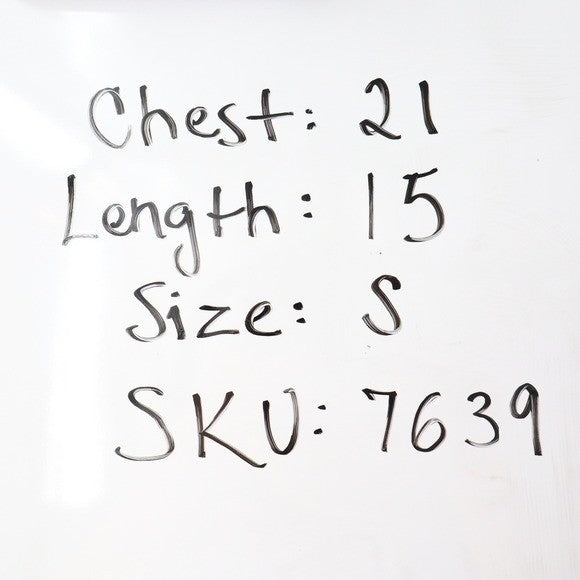 Chest: 21
Length: 15
Size: S
SKU: 7639